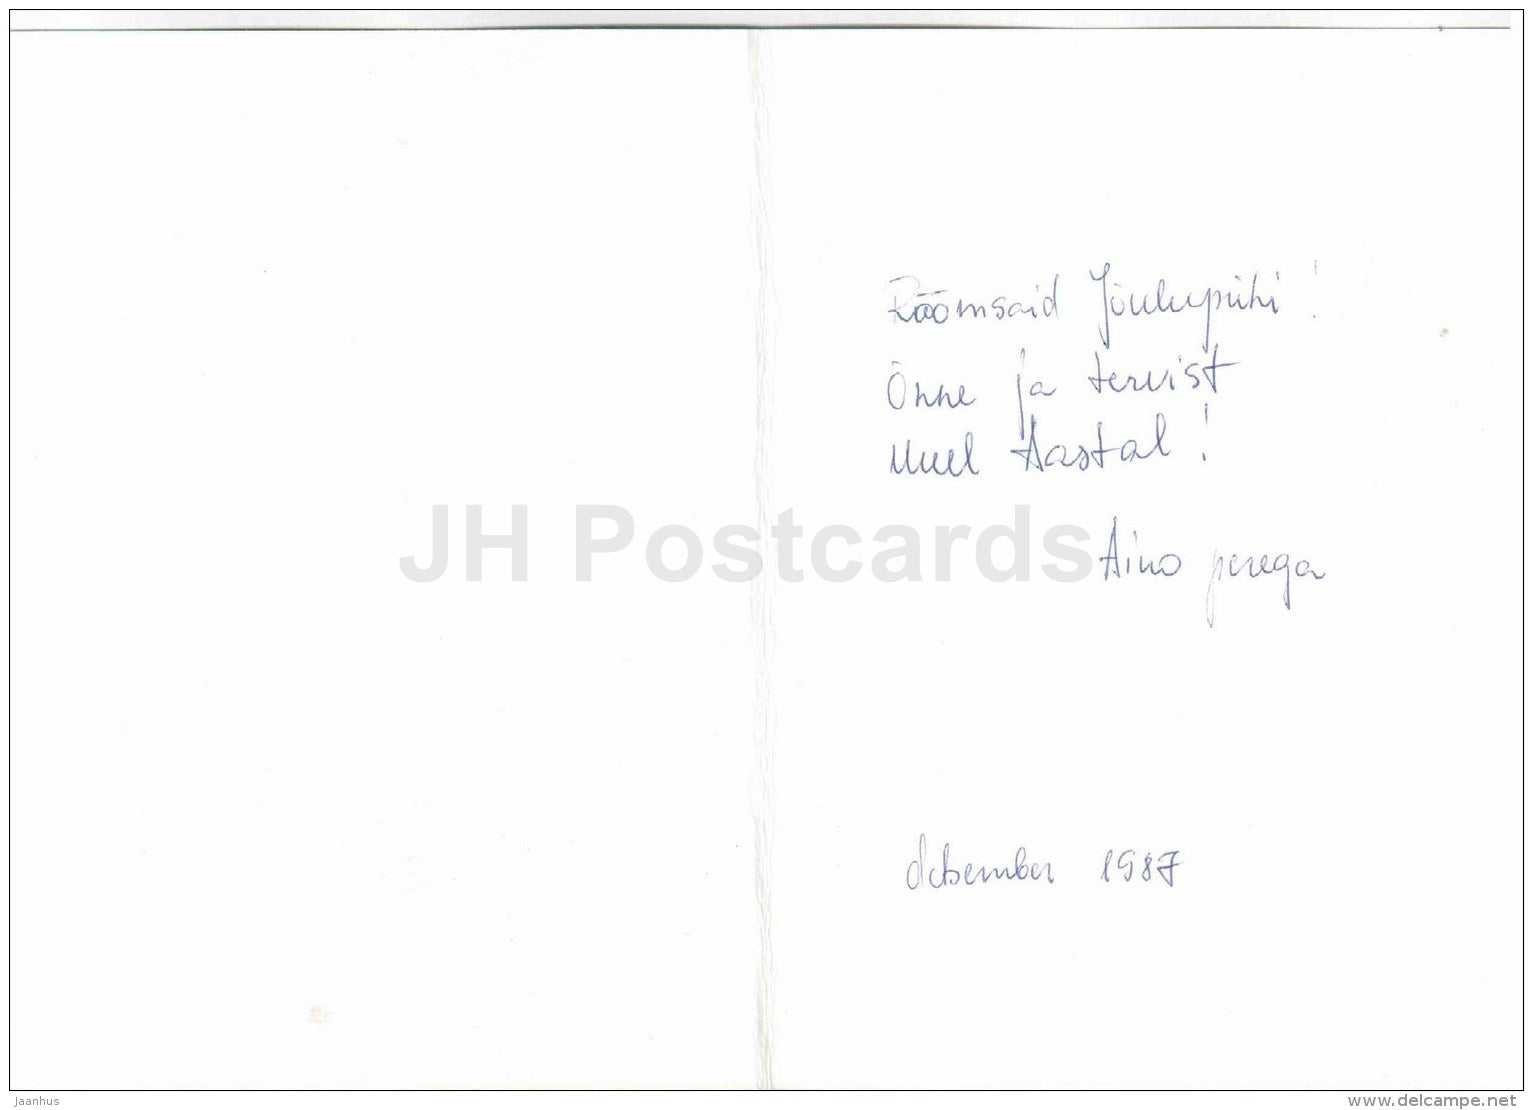 Rõõmsaid Jõulupühi!
Õnne ja tervist
Uuel Aastal!
JH Postcards
Aino perega
detsember 1987
Jaanhus
www.delcampe.net